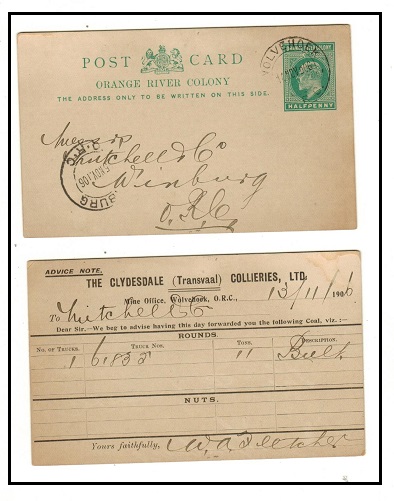 POST CARD
ORANGE RIVER COLONY
THE ADDRESS ONLY TO BE WRITTEN ON THIS SIDE.
ORANGE RIVER COLONY
HALFPENNY
Messrs
Mitchell & Co
Winburg
O.R.C.
BURG
O.R.C
NOV 06
ADVICE NOTE.
THE CLYDESDALE (Transvaal) COLLIERIES, LTD.
Mine Office, Wolvehoek, O.R.C., 13/11/1906
To Mitchell & Co
Dear Sir,—We beg to advise having this day forwarded you the following Coal, viz.:—
ROUNDS.
No. of Trucks. Truck Nos. Tons. Description.
1 61833 11 Bulk
NUTS.
Yours faithfully, W. A. Fletcher